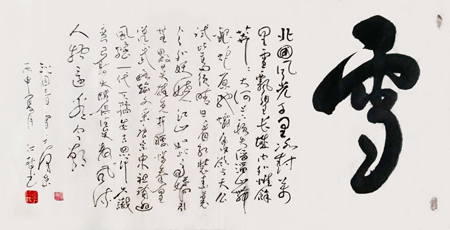 雪
北國风光千里冰封萬
里雪飘望長城内外惟餘
莽莽大河上下頓失滔滔山舞
銀蛇原馳蜡象欲与天公
試比高须晴日看红装素裹
分外妖娆江山如此多娇引
無数英雄竞折腰惜秦皇
漢武略输文采唐宗宋祖稍逊
风骚一代天骄成吉思汗只識
弯弓射大雕俱往矣数风流
人物還看今朝
沁园春雪毛泽东
丙申